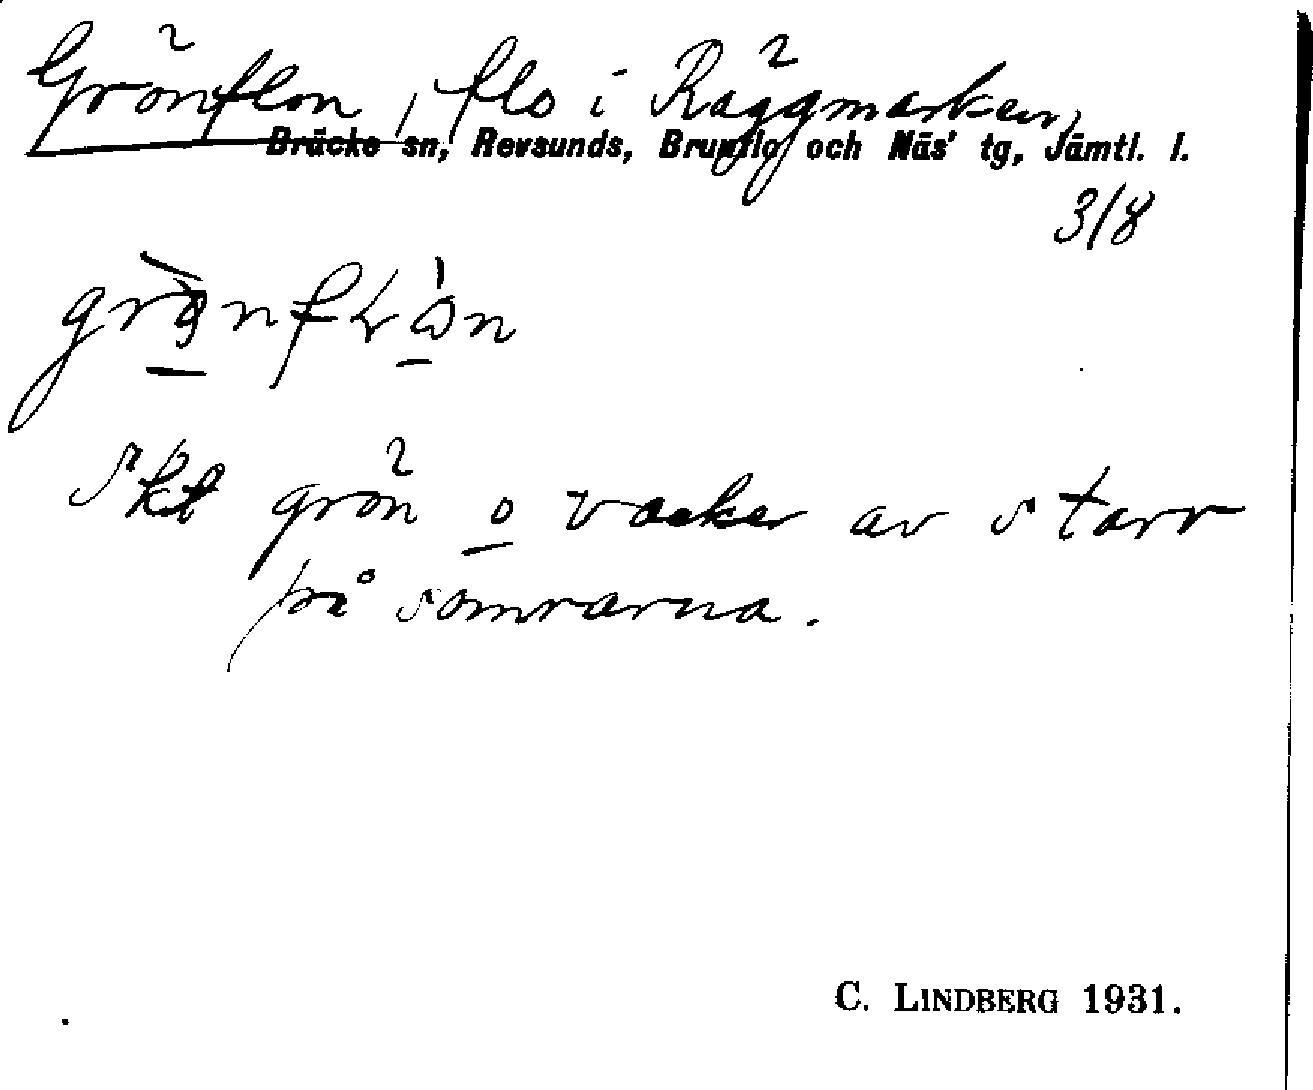 Grönflon, flo i Räggmarken,
Bräcke sn, Revsunds, Brunflo och Näs' tg, Jämtl. l.
3/8
Skt grön o vacker av starr
på somrarna.
C. LINDBERG 1931.